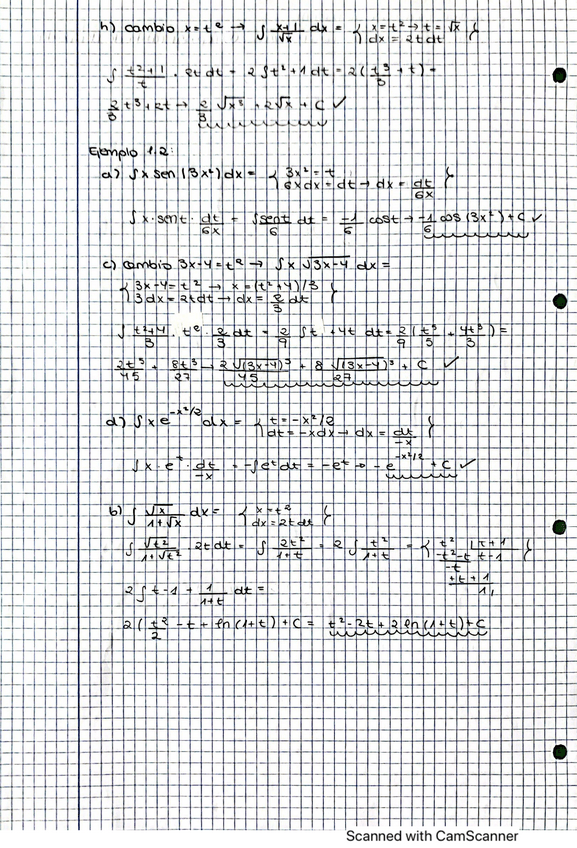 h) cambio x = t² → ∫ x+1/√x dx = { x = t² → t = √x
dx = 2t dt }
∫ t²+1/t · 2t dt = 2 ∫ t²+1 dt = 2(t³/3 + t) =
2/3 t³ + 2t → 2/3 √x³ + 2√x + C ✓
Ejemplo 1.2:
a) ∫ x sen(3x²) dx = { 3x² = t
6x dx = dt → dx = dt/6x }
∫ x · sent · dt/6x = ∫ sent/6 dt = -1/6 cost → -1/6 cos(3x²) + C ✓
c) cambio 3x-4 = t² → ∫ x √3x-4 dx =
{ 3x-4 = t² → x = (t²+4)/3
3 dx = 2t dt → dx = 2/3 dt }
∫ t²+4/3 · t² · 2/3 dt = 2/9 ∫ t + 4t dt = 2/9 (t⁵/5 + 4t³/3) =
2t⁵/45 + 8t³/27 → 2√(3x-4)⁵/45 + 8√(3x-4)³/27 + C ✓
d) ∫ x e^-x²/2 dx = { t = -x²/2
dt = -x dx → dx = dt/-x }
∫ x · eᵗ · dt/-x = -∫ eᵗ dt = -eᵗ → -e^-x²/2 + C ✓
b) ∫ √x/1+√x dx = { x = t²
dx = 2t dt }
∫ √t²/1+√t² · 2t dt = ∫ 2t²/1+t = 2 ∫ t²/1+t = { t² | t+1
-t²-t t-1
-t
+t+1
1, }
2 ∫ t-1 + 1/1+t dt =
2(t²/2 - t + ln(1+t) + C = t² - 2t + 2 ln(1+t) + C
Scanned with CamScanner